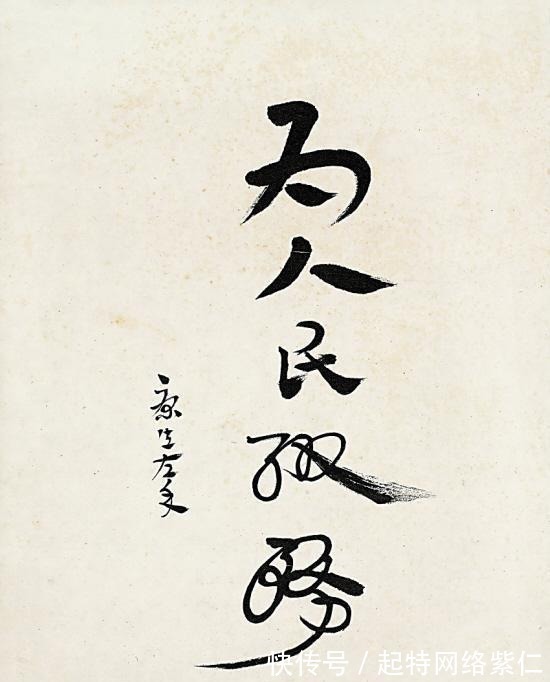 为人民服务
康生左手
快传号／起特网络紫仁